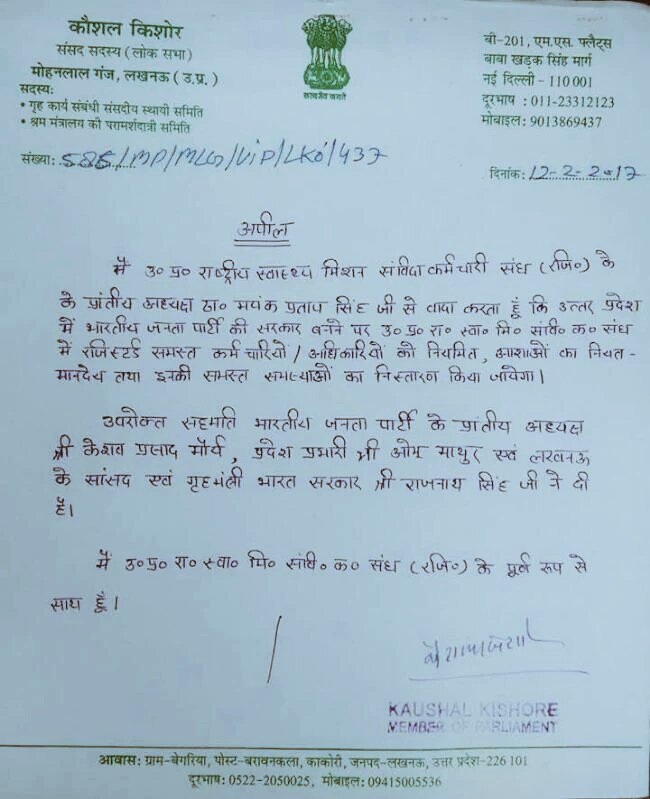 कौशल किशोर
संसद सदस्य (लोक सभा)
मोहनलाल गंज, लखनऊ (उ.प्र.)
सदस्य:
• गृह कार्य संबंधी संसदीय स्थायी समिति
• श्रम मंत्रालय की परामर्शदात्री समिति
सत्यमेव जयते
बी-201, एम.एस. फ्लैट्स
बाबा खड़क सिंह मार्ग
नई दिल्ली - 110001
दूरभाष : 011-23312123
मोबाइल: 9013869437
संख्या: 585/MP/MLG/ViP/LKO/437
दिनांक: 12-2-2017
अपील
मैं उ० प्र० राष्ट्रीय स्वास्थ्य मिशन संविदा कर्मचारी संघ (रजि०) के
के प्रांतीय अध्यक्ष डा० मयंक प्रताप सिंह जी से वादा करता हूँ कि उत्तर प्रदेश
में भारतीय जनता पार्टी की सरकार बनने पर उ० प्र० रा० स्वा० मि० संवि० क० संघ
में रजिस्टर्ड समस्त कर्मचारियों / अधिकारियों को नियमित, आशाओं का नियत-
मानदेय तथा इनकी समस्त समस्याओं का निस्तारण किया जायेगा।
उपरोक्त सहमति भारतीय जनता पार्टी के प्रांतीय अध्यक्ष
श्री केशव प्रसाद मौर्य, प्रदेश प्रभारी श्री ओम माथुर एवं लखनऊ
के सांसद एवं गृहमंत्री भारत सरकार श्री राजनाथ सिंह जी ने दी
है।
मैं उ० प्र० रा० स्वा० मि० संवि० क० संघ (रजि०) के पूर्ण रूप से
साथ हूँ।
KAUSHAL KISHORE
MEMBER OF PARLIAMENT
आवास: ग्राम-बेगरिया, पोस्ट-बरावनकला, काकोरी, जनपद-लखनऊ, उत्तर प्रदेश-226 101
दूरभाष: 0522-2050025, मोबाइल: 09415005536